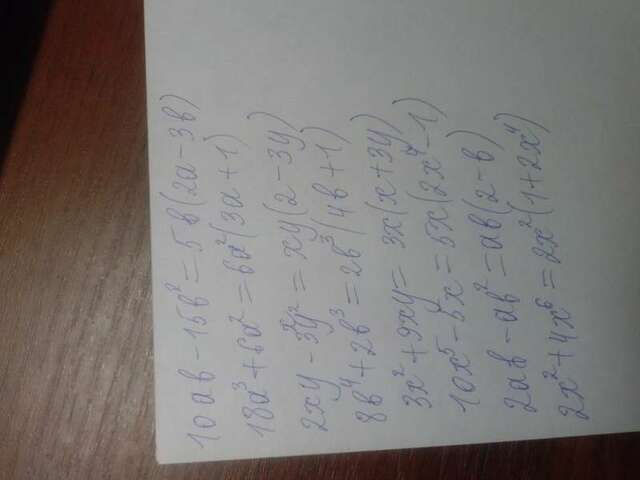 10ab - 15b² = 5b(2a - 3b)
18a³ + 6a² = 6a²(3a + 1)
2xy - 3y² = xy(2 - 3y)
8b⁴ + 2b³ = 2b³(4b + 1)
3x² + 9xy = 3x(x + 3y)
10x⁵ - 5x = 5x(2x⁴ - 1)
2ab - ab² = ab(2 - b)
2x² + 4x⁶ = 2x²(1 + 2x⁴)